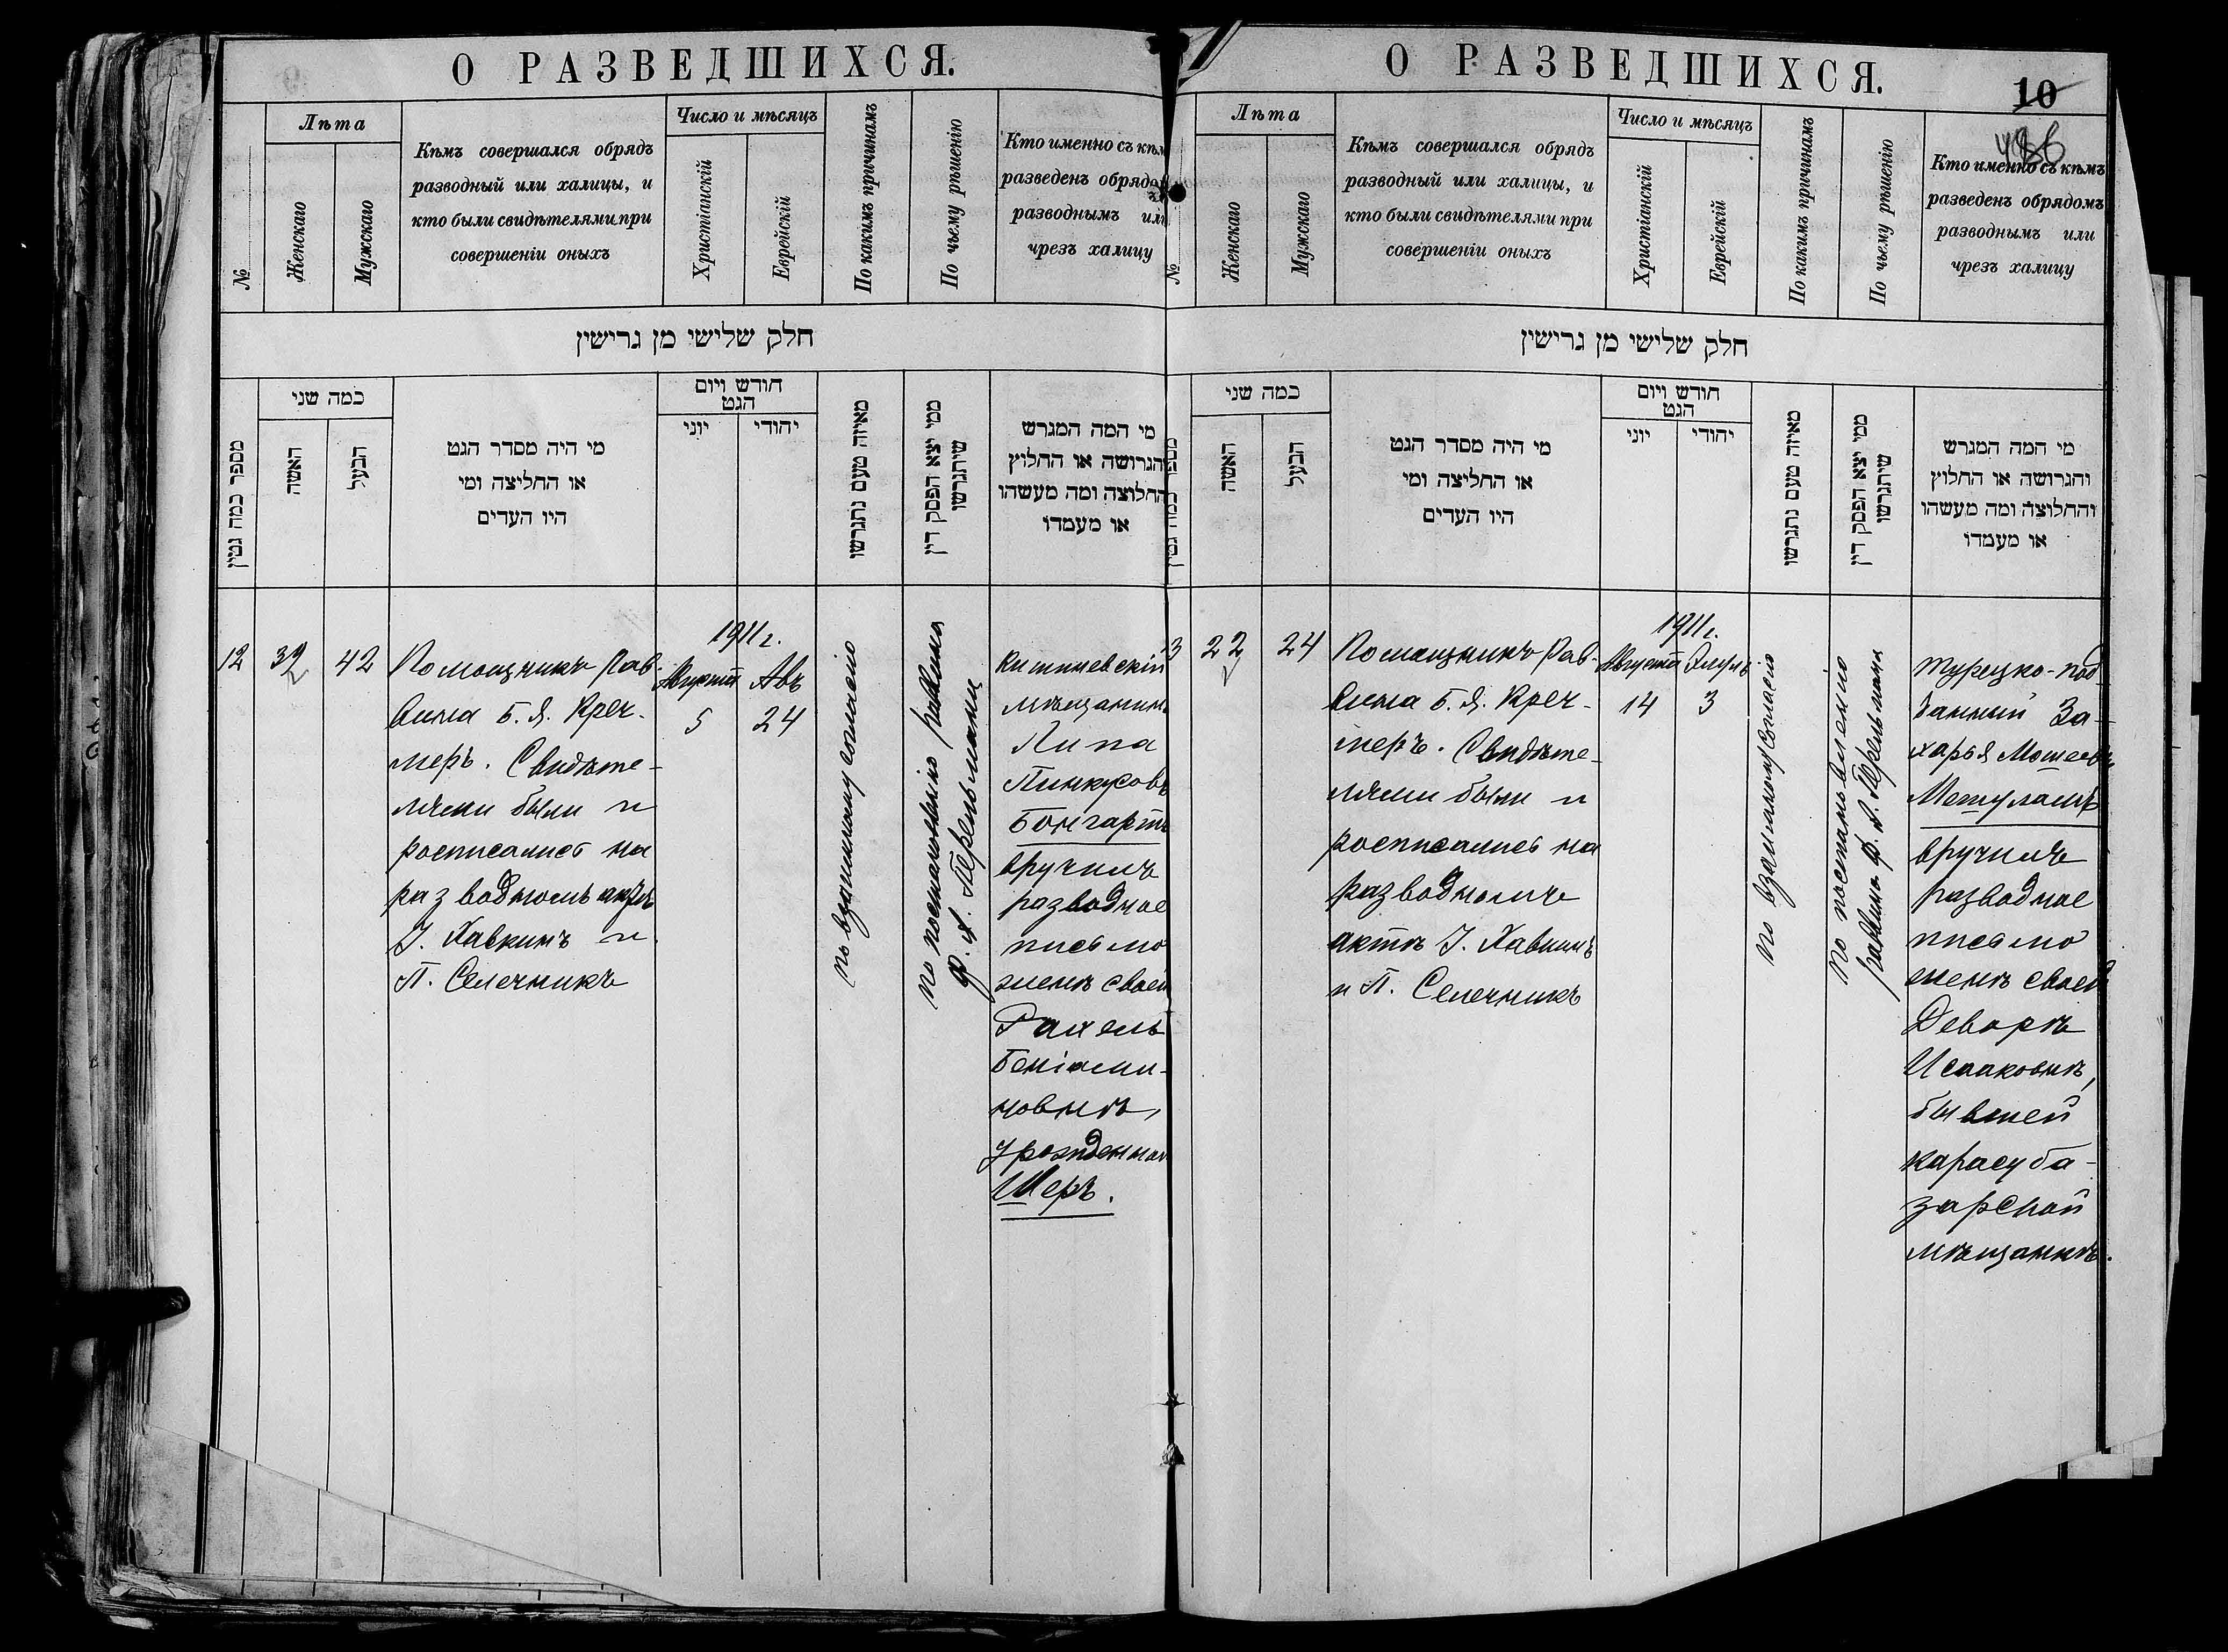 О РАЗВЕДШИХСЯ.
№
Лѣта
Женскаго
Мужскаго
Кѣмъ совершался обрядъ
разводный или халицы, и
кто были свидѣтелями при
совершеніи оныхъ
Число и мѣсяцъ
Христіанскій
Еврейскій
По какимъ причинамъ
По чьему рѣшенію
Кто именно съ кѣм
разведенъ обрядо
разводнымъ или
чрезъ халицу
חלק שלישי מן גרישין
מספר כמה גטין
כמה שני
האשה
הבעל
מי היה מסדר הגט
או החליצה ומי
היו העדים
חודש ויום
הגט
יוני
יהודי
מאיזה טעם נתגרשו
ממי יצא הפסק דין
שיתגרשו
מי המה המגרש
והגרושה או החלוץ
והחלוצה ומה מעשהו
או מעמדו
12
42
Помощникъ Рав-
вина Б. Я. Креч-
меръ. Свидѣте-
лями были и
росписались на
разводномъ актѣ
І. Хавкинъ и
П. Селечникъ
1911 г.
Августа
5
Авъ
24
по взаимному согласію
по постановленію раввина
Ф. А. Перельмана
Кишиневскій
мѣщанинъ
Липа
Пинкусовъ
Бонгартъ
вручилъ
разводное
письмо
женѣ своей
Рахель
Беніами-
новнѣ,
урожденной
Шеръ.
О РАЗВЕДШИХСЯ.
10
№
Лѣта
Женскаго
Мужскаго
Кѣмъ совершался обрядъ
разводный или халицы, и
кто были свидѣтелями при
совершеніи оныхъ
Число и мѣсяцъ
Христіанскій
Еврейскій
По какимъ причинамъ
По чьему рѣшенію
Кто именно съ кѣмъ
разведенъ обрядомъ
разводнымъ или
чрезъ халицу
חלק שלישי מן גרישין
כמה שני
האשה
הבעל
מי היה מסדר הגט
או החליצה ומי
היו העדים
חודש ויום
הגט
יוני
יהודי
מאיזה טעם נתגרשו
ממי יצא הפסק דין
שיתגרשו
מי המה המגרש
והגרושה או החלוץ
והחלוצה ומה מעשהו
או מעמדו
3
22
24
Помощникъ Рав-
вина Б. Я. Креч-
меръ. Свидѣте-
лями были и
росписались на
разводномъ
актѣ І. Хавкинъ
и П. Селечникъ
1911 г.
Августа
14
Элулъ
3
по взаимному согласію
по постановленію
раввина Ф. А. Перельмана
Турецко-под-
данный За-
харья Мошеевъ
Мешуламъ
вручилъ
разводное
письмо
женѣ своей
Деворѣ
Исааковнѣ,
бывшей
карасуба-
зарской
мѣщанкѣ.